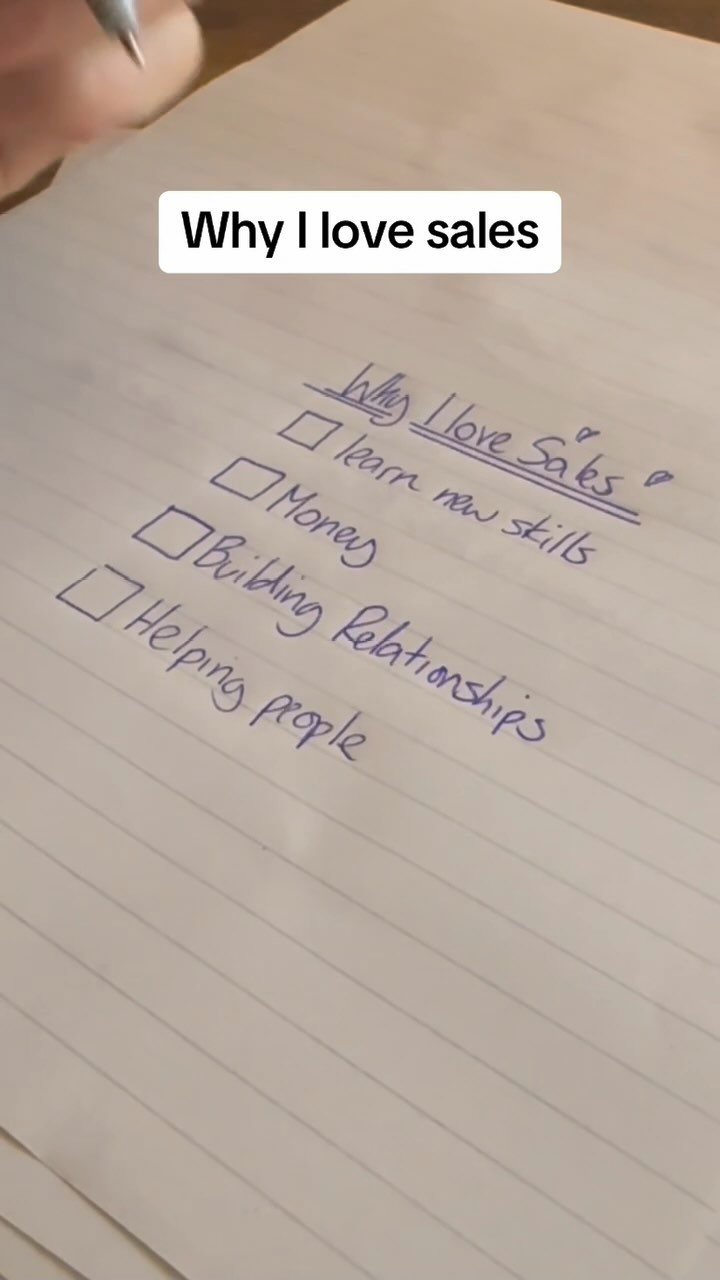 Why I love sales
Why I love Sales
learn new skills
Money
Building Relationships
Helping people